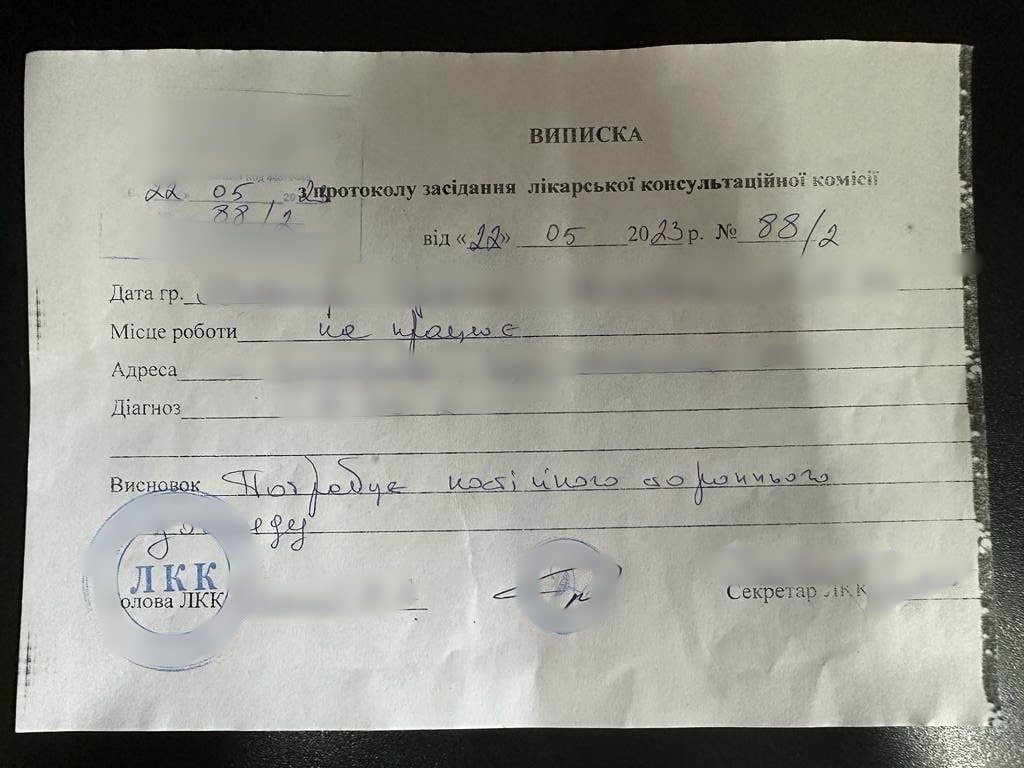 ВИПИСКА
22 05 20 23
з протоколу засідання лікарської консультаційної комісії
88/2
від «22» 05 2023 р. № 88/2
Дата гр.
Місце роботи не працює
Адреса
Діагноз
Висновок Потребує постійного стороннього
догляду
ЛКК
олова ЛКК
Секретар ЛКК